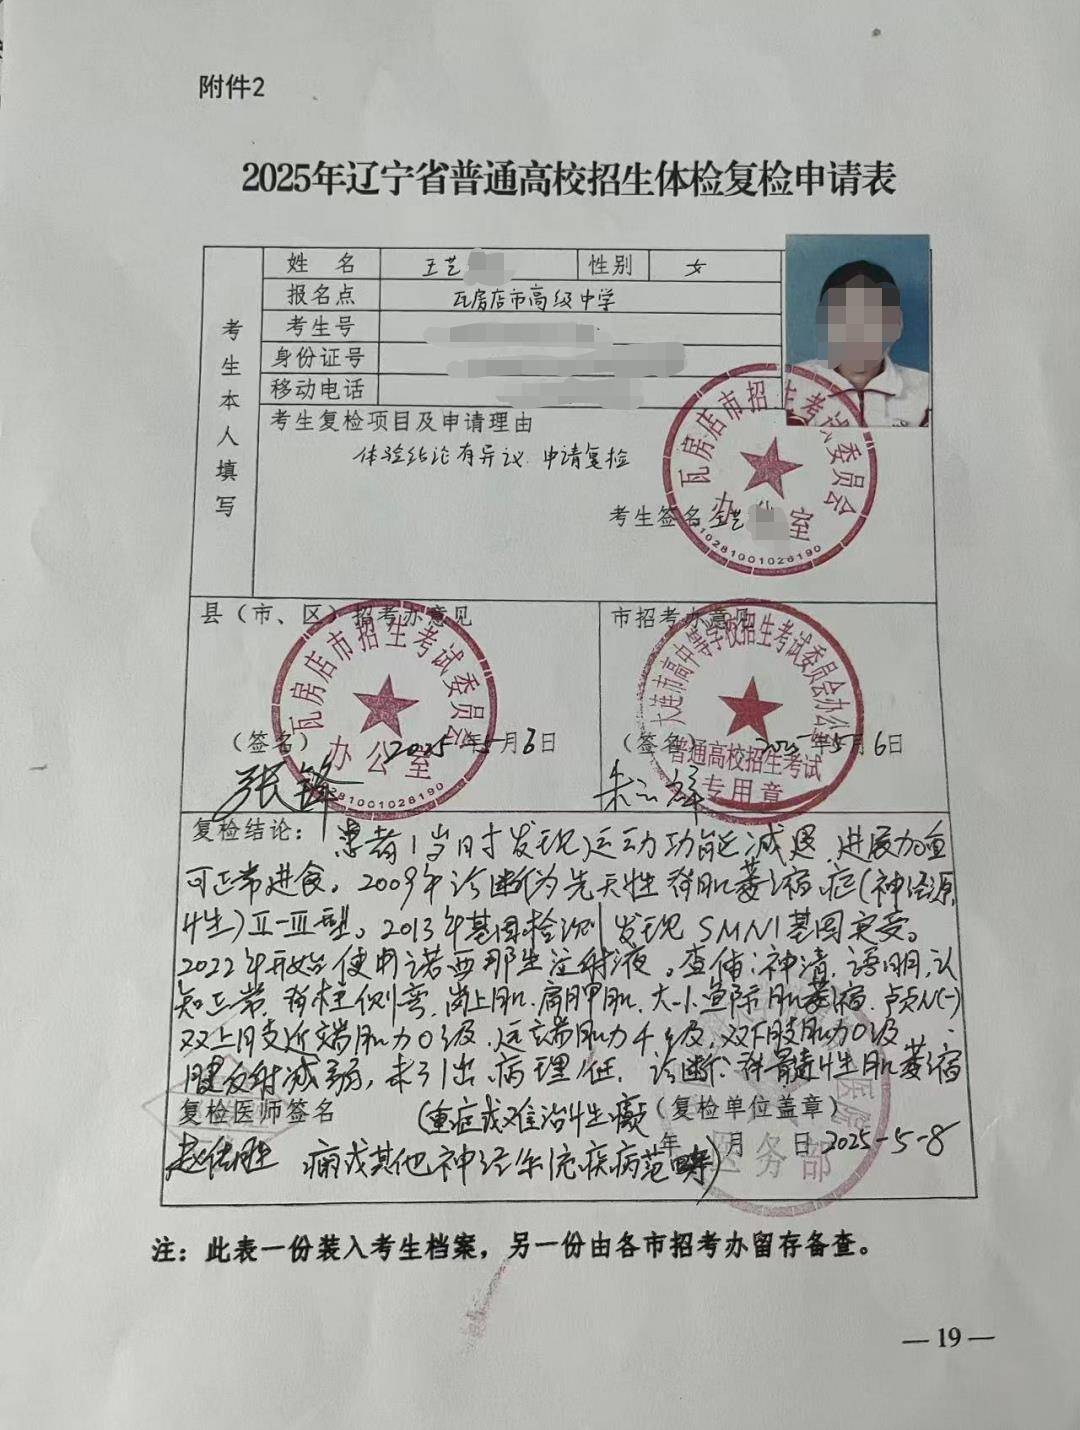 附件2
2025年辽宁省普通高校招生体检复检申请表
考生本人填写
姓 名 王艺 性别 女
报名点 瓦房店市高级中学
考生号
身份证号
移动电话
考生复检项目及申请理由
体验结论有异议 申请复检
考生签名 王艺
瓦房店市招生考试委员会
办公室
210281001026190
县（市、区）招考办意见
瓦房店市招生考试委员会
办公室
（签名） 2025年5月6日
张锋
市招考办意见
大连市高中等学校招生考试委员会办公室
普通高校招生考试
专用章
（签名） 2025年5月6日
复检结论：患者1岁时发现运动功能减退，进展加重
可正常进食。2009年诊断为先天性脊肌萎缩症（神经源
性）II-III型。2013年基因检测发现SMN1基因突变。
2022年开始使用诺西那生注射液。查体：神清，语明，认
知正常，脊柱侧弯，岗上肌、肩胛肌、大小鱼际肌萎缩，
双上肢近端肌力0级，远端肌力4级，双下肢肌力0级，
腱反射减弱，未引出病理征。诊断：脊髓性肌萎缩
（重症或难治性癫
痫或其他神经系统疾病范畴）
复检医师签名
（复检单位盖章）
年 月 日 2025-5-8
医院
医务部
注：此表一份装入考生档案，另一份由各市招考办留存备查。
— 19 —